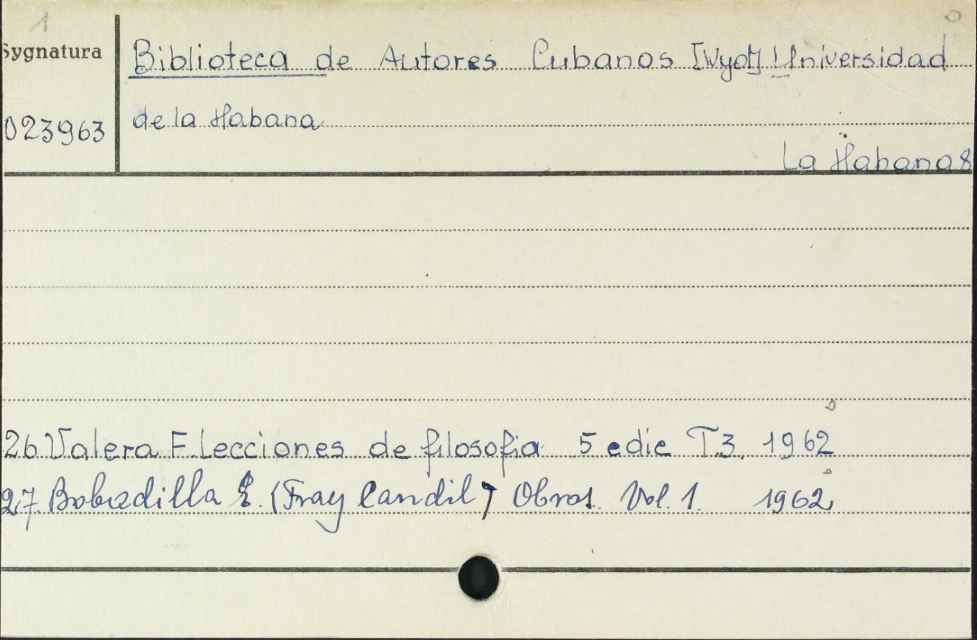 1
Sygnatura
Biblioteca de Autores Cubanos [Wyd] Universidad
023963
de la Habana
La Habana 8
26 Valera F. Lecciones de filosofia 5 edic T.3. 1962
27. Bobadilla E. (Fray Candil) Obras. Vol. 1. 1962